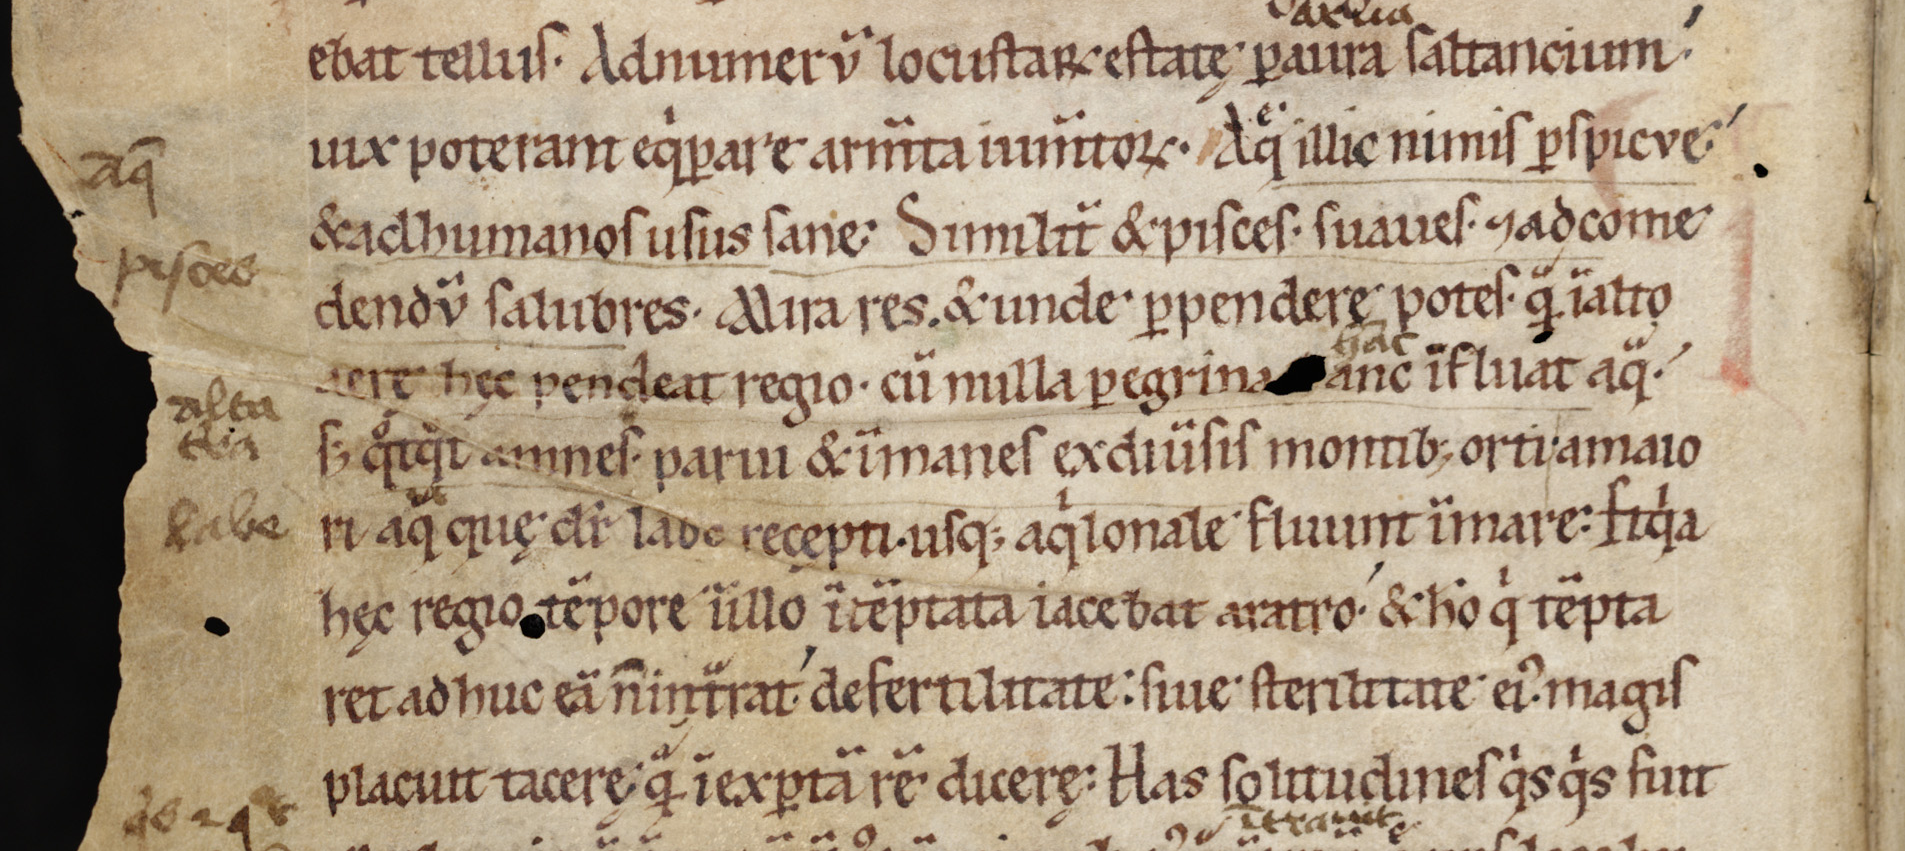 ebat tellus. Ad numerū locustaꝝ estatę ꝑ aura saltancium
uix poterant eqͥꝑare arm̄ta ium̄toꝝ. Aq̄ illic nimis ꝑspicue
aq̄
& ad humanos usus sane. Similit̄ & pisces. suaues. ⁊ ad come
pisces
dendū salubres. Mira res. & unde ꝑpendere potes. qͣ ī alto
aere hęc pendeat regio. cū nulla peregrina hanc īfluat aq̄.
alta
hac
sꝫ qͦtqͦt amnes. parui & īmanes ex diūsis montibꝫ orti. a maio
ri aq̄ quę dr̄ labe recepti. usqꝫ aqͥlonale fluunt ī mare.
labe
hęc regio tēpore ūllo ītēptata iacebat aratro. & hō qͥ tēpta
ret adhuc eā n̄ intͣrat de fertilitate. siue sterilitate eiꝰ magis
placuit tacere. qͣ īexꝑtā rē dicere. Has solitudines qͥsqͥs fuit